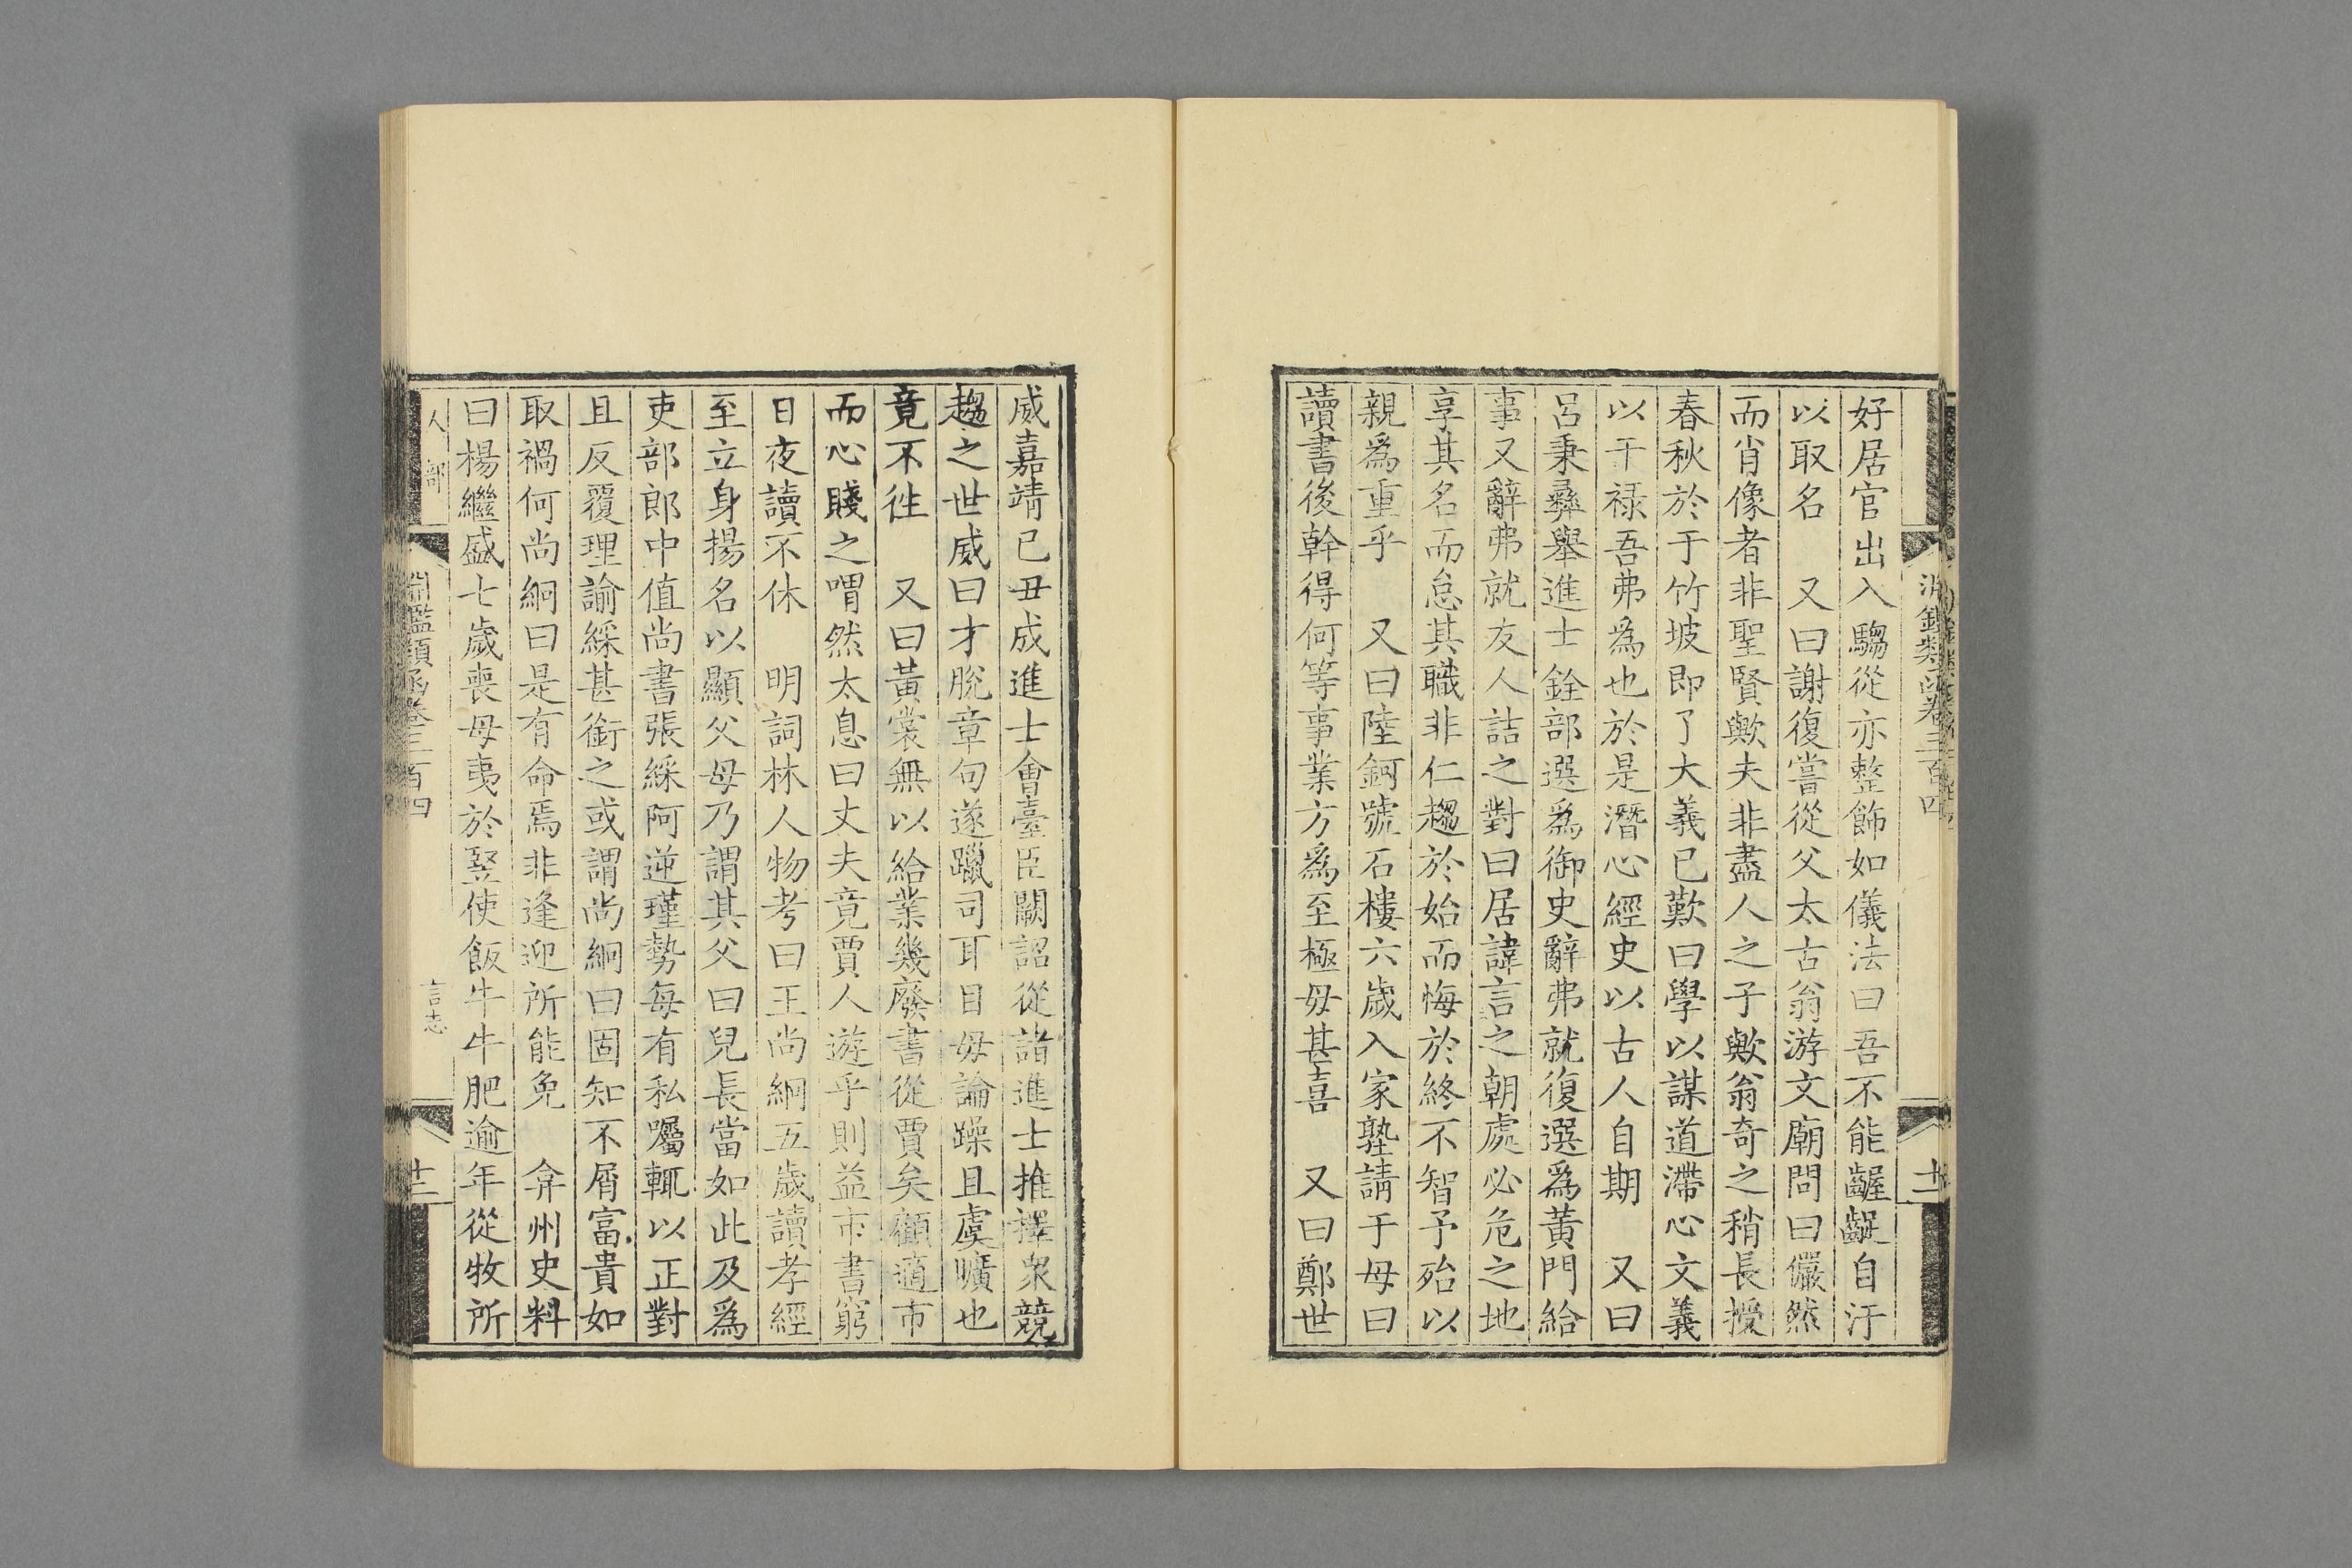 好居官出入騶從亦整飾如儀法曰吾不能齷齪自汙
以取名　又曰謝復嘗從父太古翁游文廟問曰儼然
而肖像者非聖賢歟夫非盡人之子歟翁奇之稍長授
春秋於于竹坡即了大義已歎曰學以謀道滯心文義
以干祿吾弗爲也於是潛心經史以古人自期　又曰
呂秉彝舉進士銓部選爲御史辭弗就復選爲黃門給
事又辭弗就友人詰之對曰居諱言之朝處必危之地
享其名而怠其職非仁趨於始而悔於終不智予殆以
親爲重乎　又曰陸釴號石樓六歲入家塾請于母曰
讀書後幹得何等事業方爲至極毋甚喜　又曰鄭世
威嘉靖己丑成進士會臺臣闕詔從諸進士推擇衆競
趨之世威曰才脫章句遂躐司耳目毋論躁且虞曠也
竟不徃　又曰黃裳無以給業幾廢書從賈矣顧適市
而心賤之喟然太息曰丈夫竟賈人遊乎則益市書窮
日夜讀不休　明詞林人物考曰王尚絅五歲讀孝經
至立身揚名以顯父母乃謂其父曰兒長當如此及爲
吏部郎中值尚書張綵阿逆瑾勢每有私囑輒以正對
且反覆理諭綵甚銜之或謂尚絅曰固知不屑富貴如
取禍何尚絅曰是有命焉非逢迎所能免　弇州史料
曰楊繼盛七歲喪母夷於竪使飯牛牛肥逾年從牧所
人部
淵鑑類函卷三百四
言志
十二